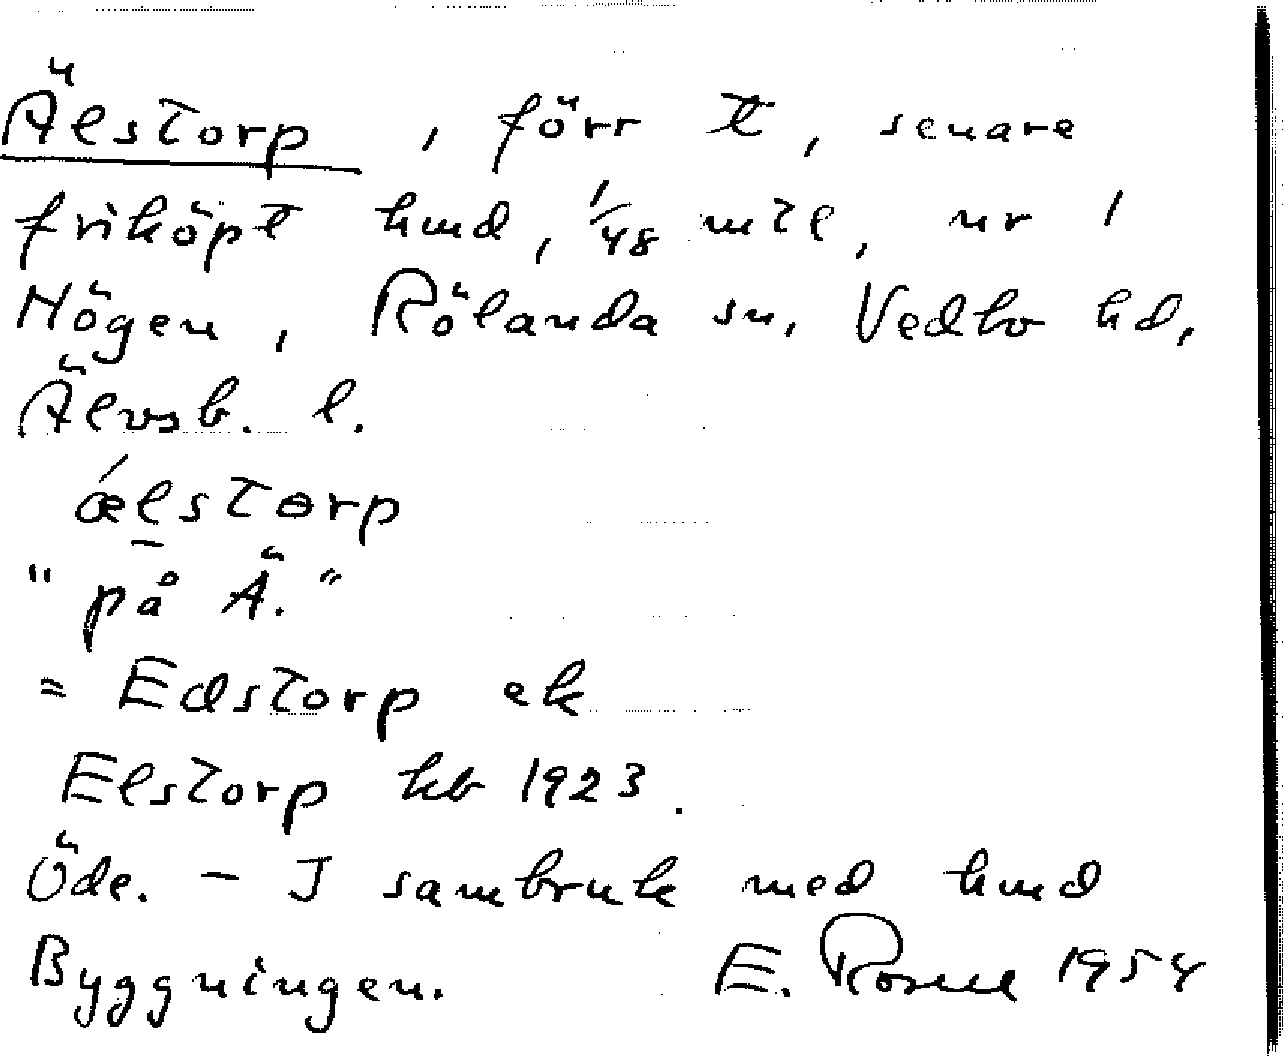 Älstorp, förr t, senare
friköpt hmd, 1/48 mtl, nr 1
Högen, Rölanda sn, Vedbo hd,
Älvsb. l.
ǽlstɵrp
"på Ä."
= Edstorp ek
Elstorp kb 1923.
Öde. - I sambruk med hmd
Byggningen. E. 1954